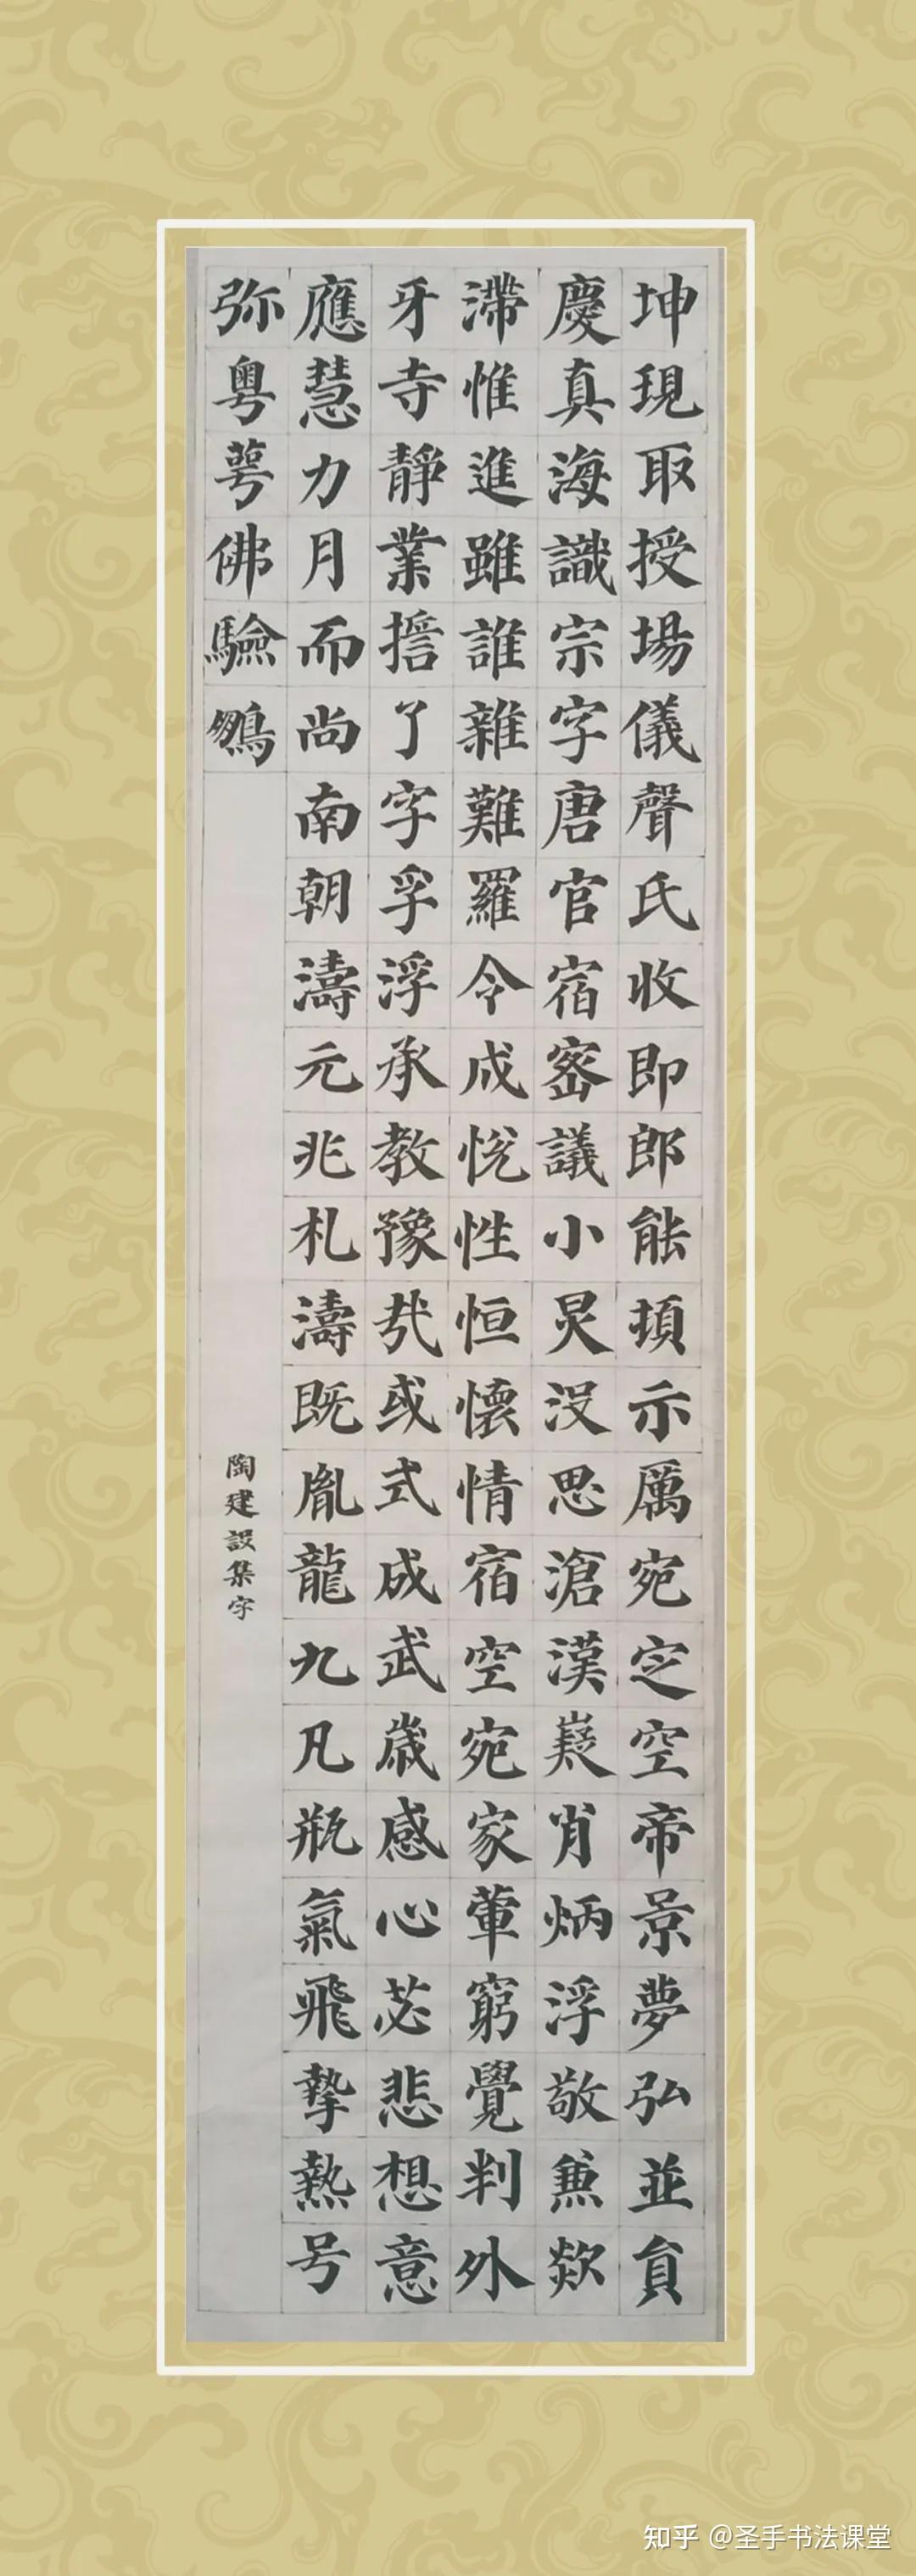 坤現取授場儀聲氏收即郎能頊示厲宛定空帝景夢弘並負
慶真海識宗字唐官宿密議小炅没思滄漢肖炳浮敬兼欻
滯惟進雖誰雜難羅令成悦性恒懷情宿空宛家葷窮覺判外
牙寺靜業擔了字孚浮承教豫哉或式成武歲感心苾悲想意
應慧力月而尚南朝濤元兆札濤既胤龍九凡瓶氣飛摯熱号
弥粤萼佛驗鷚
陶建設集字
知乎 @圣手书法课堂